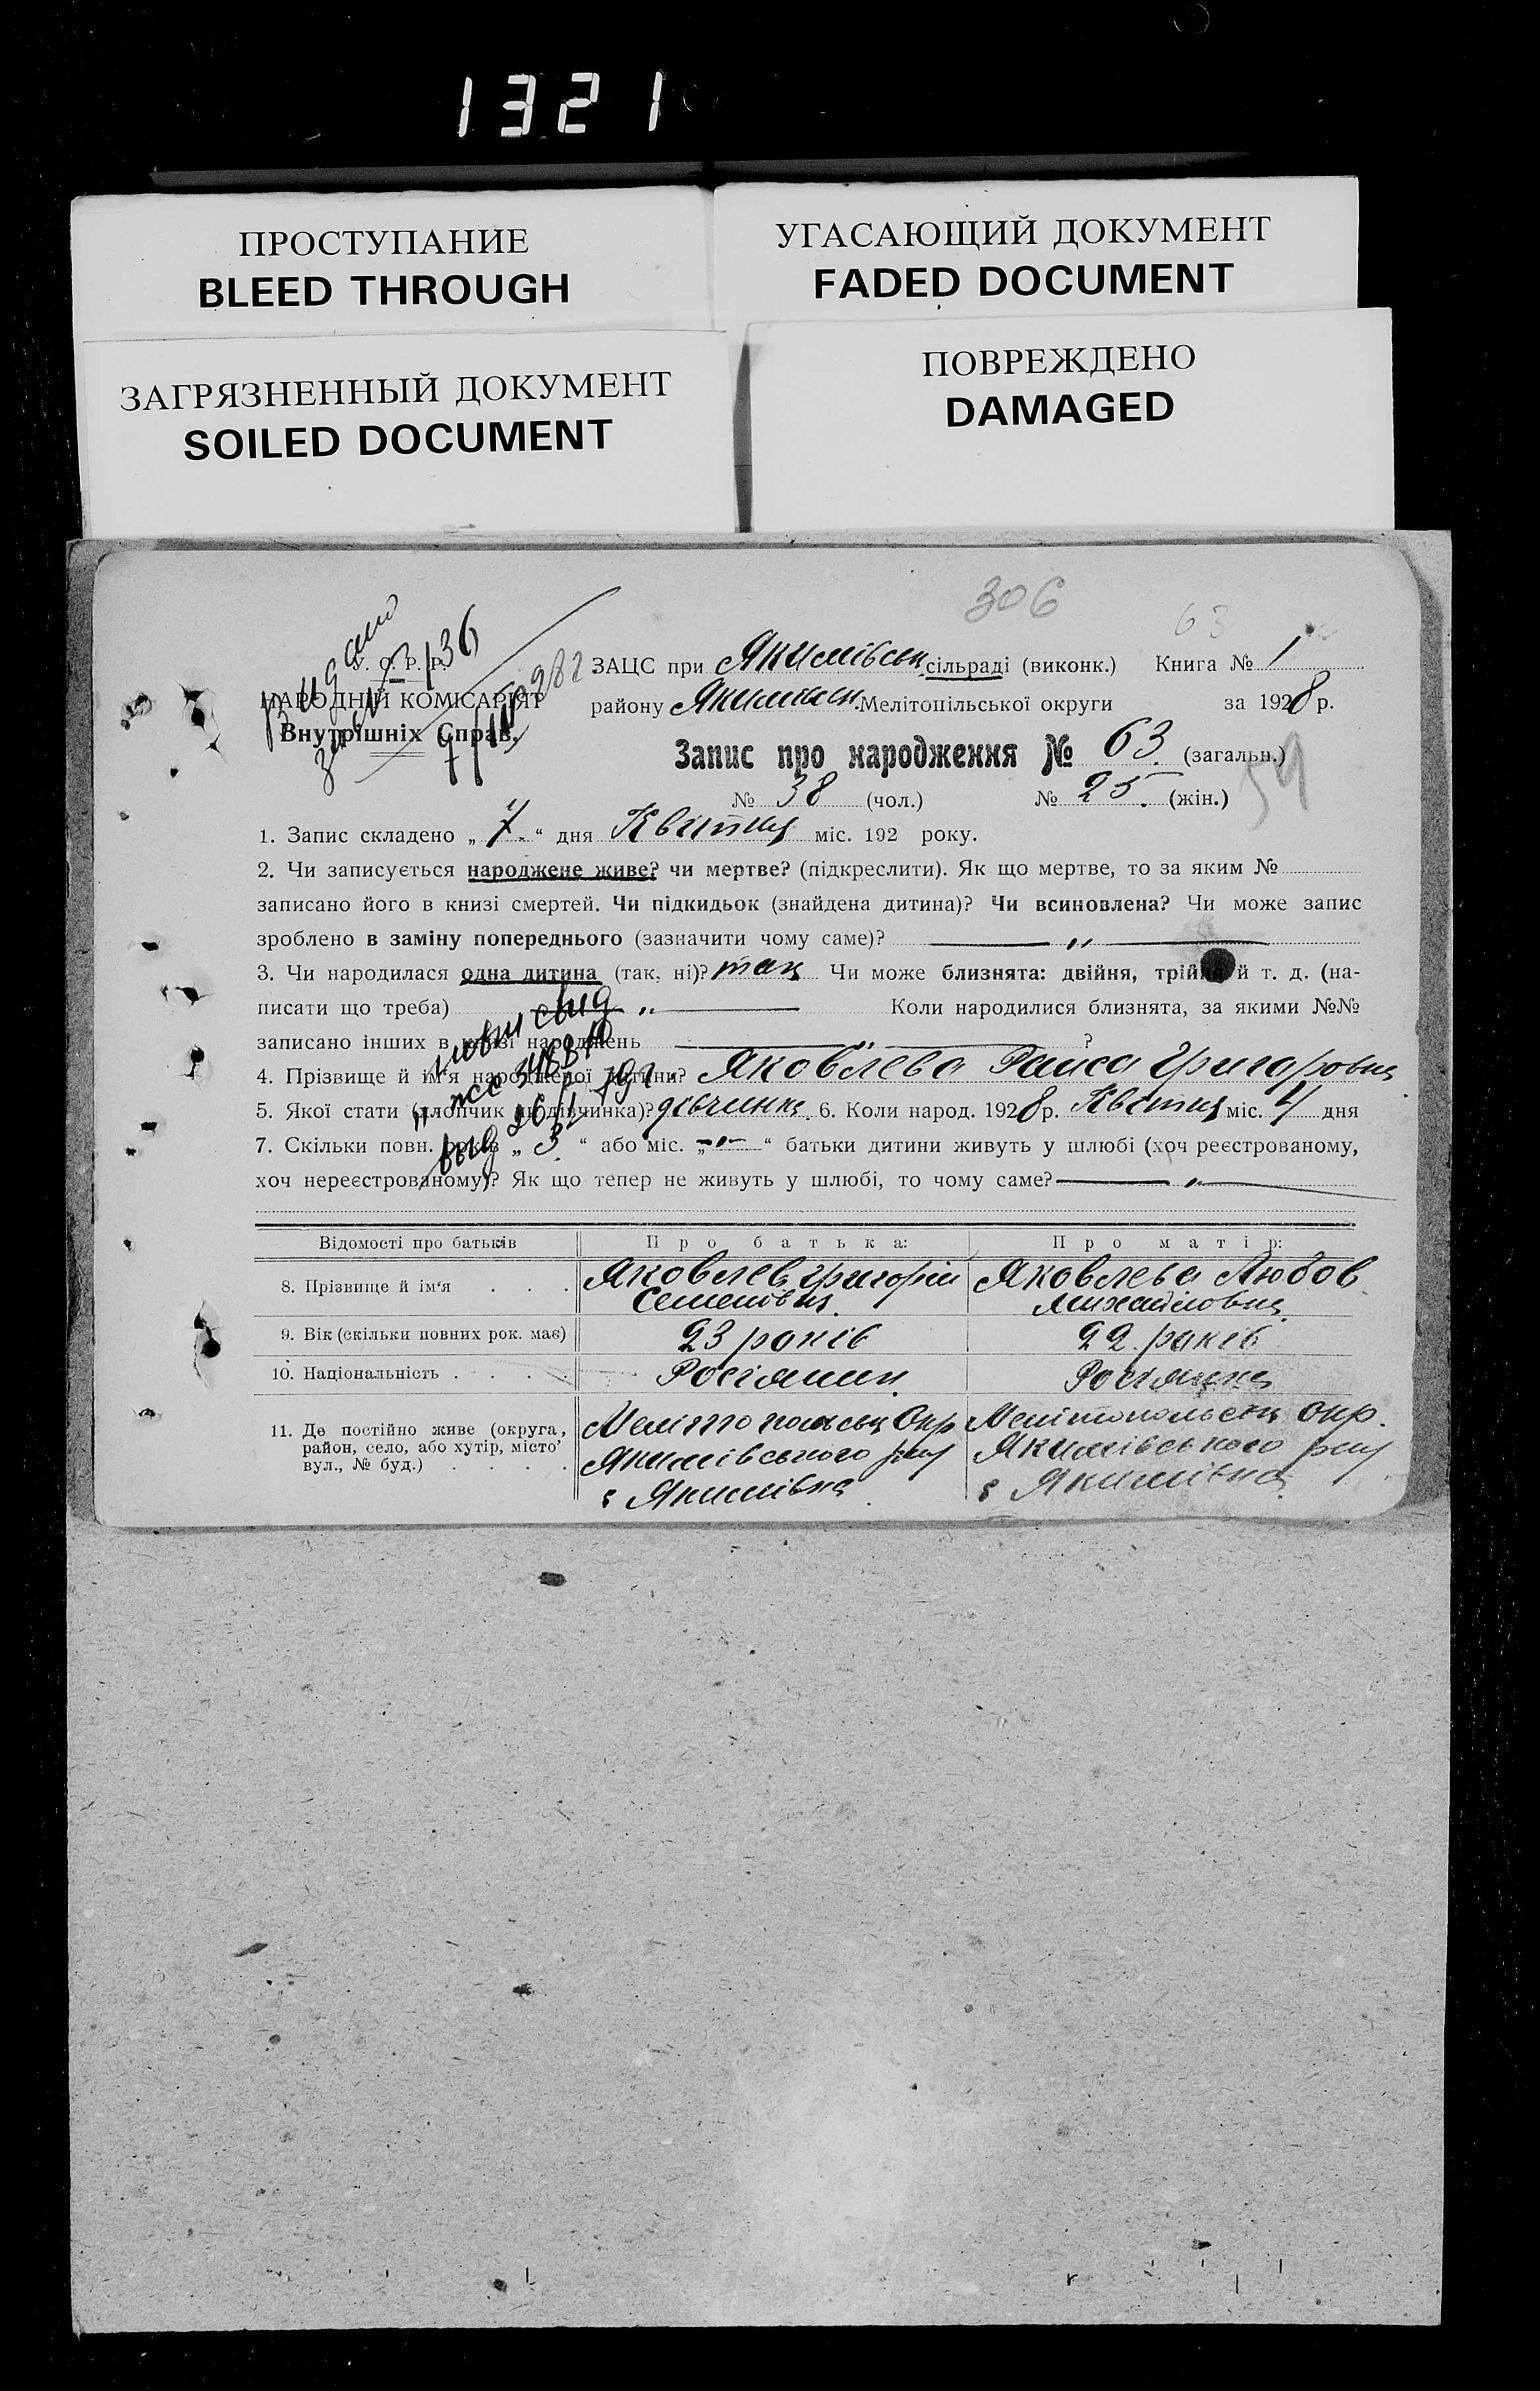 1321
ПРОСТУПАНИЕ
BLEED THROUGH
УГАСАЮЩИЙ ДОКУМЕНТ
FADED DOCUMENT
ЗАГРЯЗНЕННЫЙ ДОКУМЕНТ
SOILED DOCUMENT
ПОВРЕЖДЕНО
DAMAGED
306
63
У. С. Р. Р.
НАРОДНІЙ КОМІСАРІЯТ
Внутрішніх Справ.
ЗАЦС при Якимівськ. сільраді (виконк.) Книга № 1
району Мелітопільської округи за 1928 р.
Запис про народження № 63. (загальн.)
№ 38 (чол.) № 25. (жін.)
1. Запис складено „ “ дня Квітня міс. 192 року.
2. Чи записується народжене живе? чи мертве? (підкреслити). Як що мертве, то за яким №
записано його в книзі смертей. Чи підкидьок (знайдена дитина)? Чи всиновлена? Чи може запис
зроблено в заміну попереднього (зазначити чому саме)? „
3. Чи народилася одна дитина (так, ні)? так Чи може близнята: двійня, трійня й т. д. (на-
писати що треба) „ Коли народилися близнята, за якими №№
записано інших в книзі народжень „ ?
4. Прізвище й ім'я народженої дитини? Яковлева Раиса Григоровна
5. Якої стати (хлопчик чи дівчинка)? дівчинка. 6. Коли народ. 1928 р. Квітня міс. 4 дня
7. Скільки повн. років „ 3 “ або міс. „ -"- “ батьки дитини живуть у шлюбі (хоч реєстрованому,
хоч нереєстрованому)? Як що тепер не живуть у шлюбі, то чому саме? „
Відомості про батьків Про батька: Про матір:
8. Прізвище й ім'я . . . Яковлев Григорій Яковлева Любов
Семенович. Михайловна
9. Вік (скільки повних рок. має) 23 років 22 років
10. Національність . . . . Росіянин Росіянка
11. Де постійно живе (округа, Мелітопольськ Окр Мелітопольськ Окр.
район, село, або хутір, місто' Якимівського р-ну Якимівського р-ну
вул., № буд.) . . . . с Якимівка с Якимівка